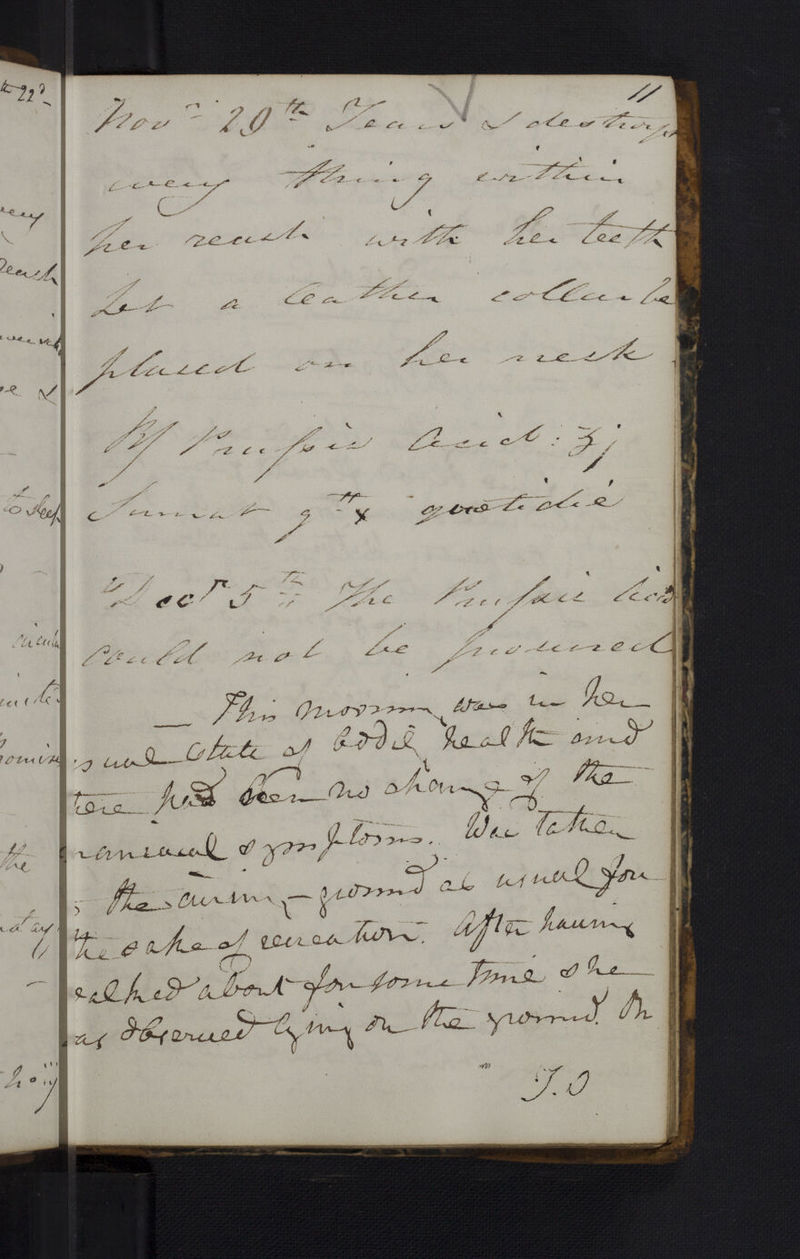 11
Novr 29th Tears & destroys
every thing within
her reach with her teeth
Let a leather collar be
placed on her neck
℞ Prussic Acid: ʒj
Sumat gtt x quotidie
Decr 5th The Prussic Acid
could not be procured
— This morning was in her
usual state of bodily health and
there had been no change of the
maniacal symptoms. Was taken
to the airing-ground as usual for
the sake of recreation. After having
walked about for some time she
was observed lying on the ground. On
T.O
th 22d
very
reach
& 
to sleep
the